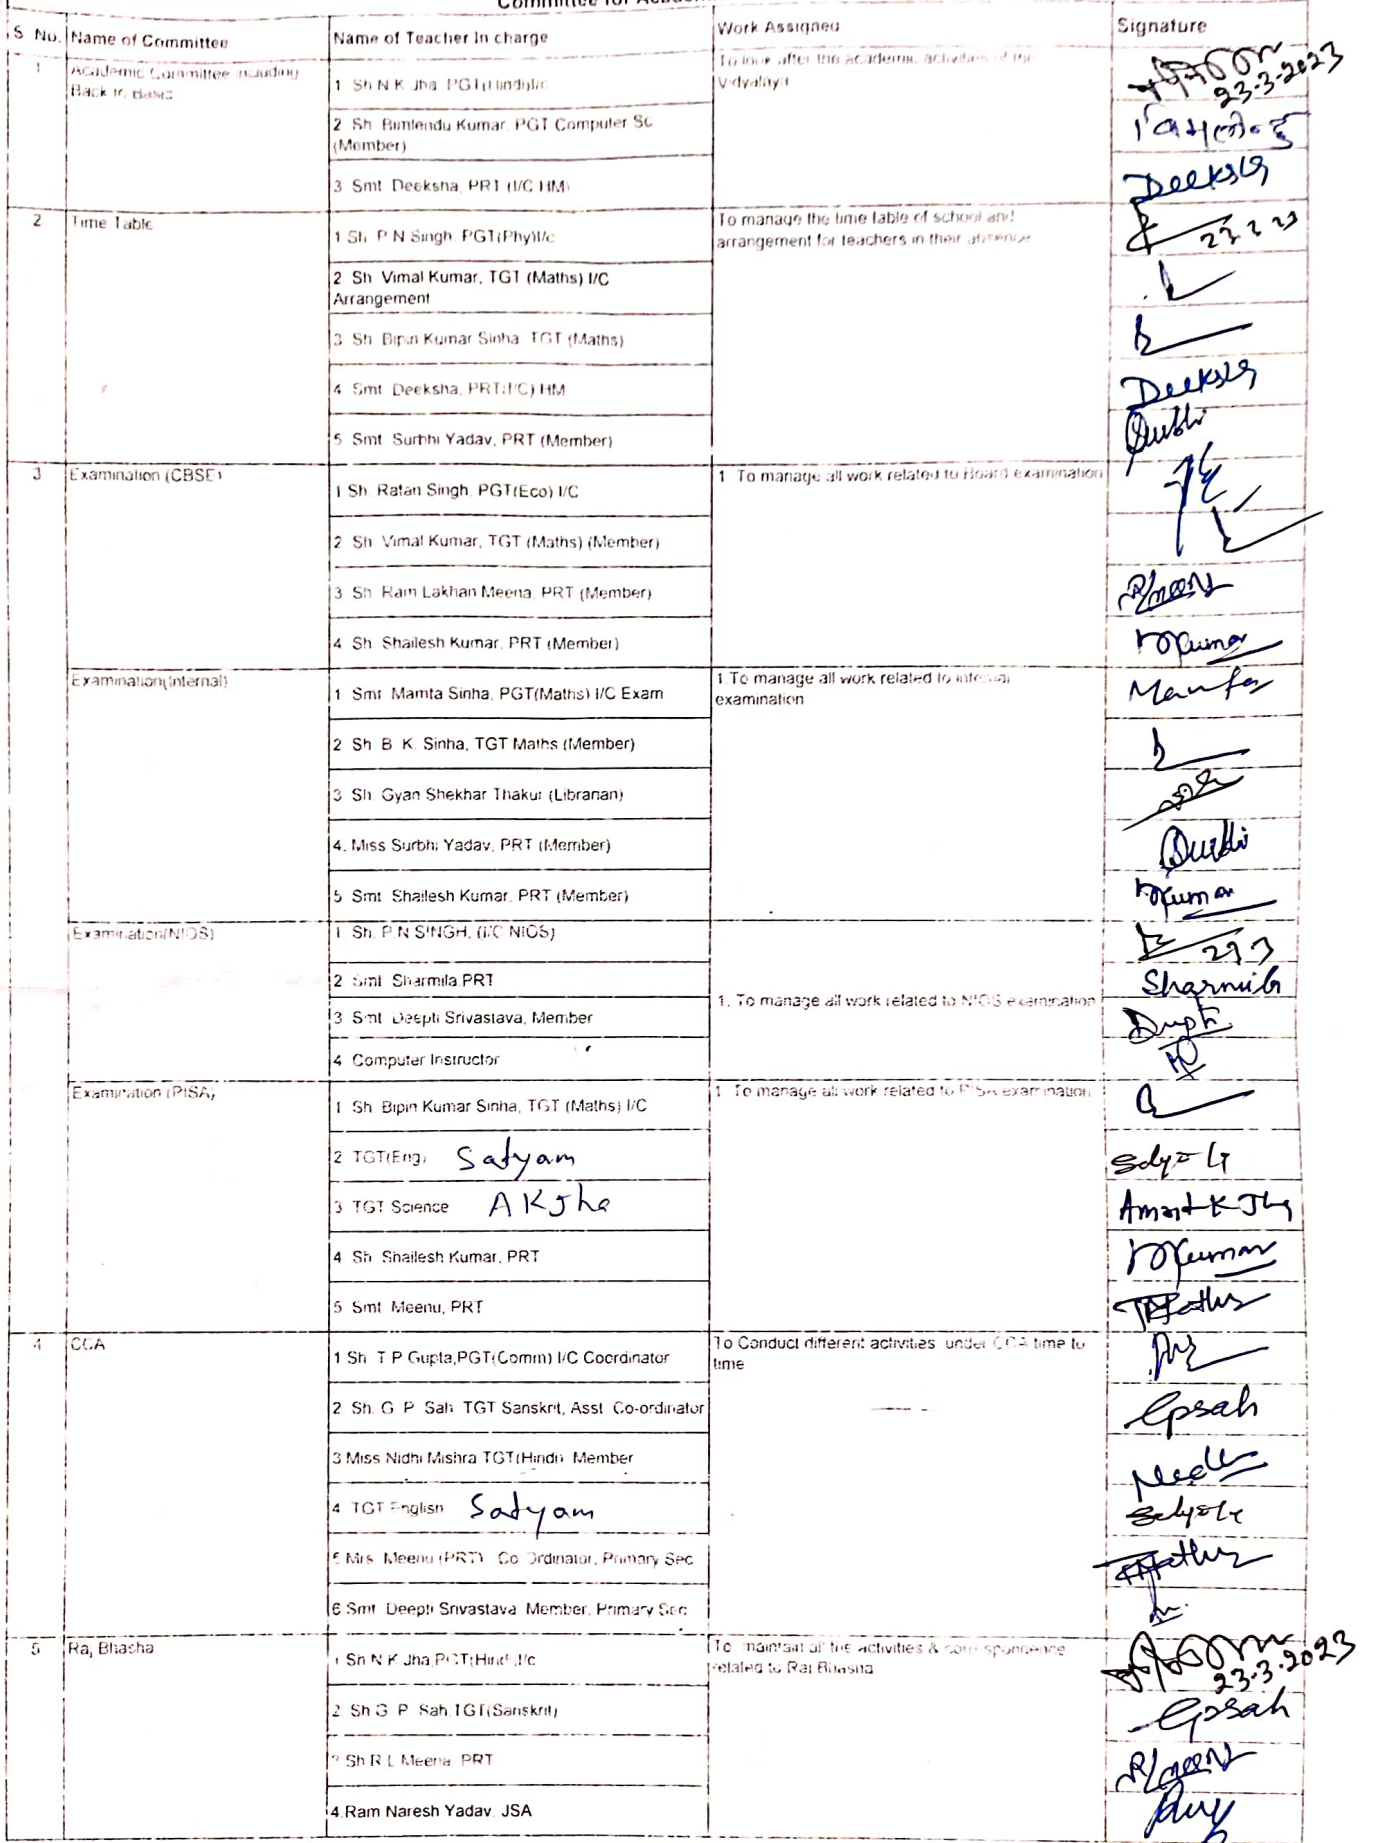 S No. Name of Committee Name of Teacher In charge Work Assigned Signature
1 Academic Committee including Back to Basic
1 Sh N K Jha PGT(Hindi)I/c
To look after the academic activities of the Vidyalaya
23-3-2023
2 Sh. Bimlendu Kumar, PGT Computer Sc (Member)
3 Smt Deeksha, PRT (I/C HM)
Deeksha
2 Time Table
1 Sh. P N Singh, PGT(Phy)I/c
To manage the time table of school and
arrangement for teachers in their absence
2 Sh Vimal Kumar, TGT (Maths) I/C
Arrangement
3 Sh Bipin Kumar Sinha TGT (Maths)
4 Smt Deeksha, PRT(I/C) HM
Deeksha
5 Smt Surbhi Yadav, PRT (Member)
3 Examination (CBSE)
1 Sh. Ratan Singh, PGT(Eco) I/C
1 To manage all work related to Board examination
2 Sh Vimal Kumar, TGT (Maths) (Member)
3 Sh Ram Lakhan Meena, PRT (Member)
4 Sh Shailesh Kumar, PRT (Member)
Examination(Internal)
1 Smt Mamta Sinha, PGT(Maths) I/C Exam
1.To manage all work related to internal
examination
Mamta
2 Sh B K. Sinha, TGT Maths (Member)
3 Sh Gyan Shekhar Thakur (Librarian)
4. Miss Surbhi Yadav, PRT (Member)
5 Smt Shailesh Kumar, PRT (Member)
Examination(NIOS)
1. Sh. P.N SINGH, (I/C NIOS)
2 Smt Sharmila,PRT
Sharmila
1. To manage all work related to NIOS examination
3 Smt Deepti Srivastava, Member
4 Computer Instructor
Examination (PISA)
1 Sh Bipin Kumar Sinha, TGT (Maths) I/C
1 To manage all work related to PISA examination
2 TGT(Eng) Satyam
3 TGT Science A K Jha
4 Sh Shailesh Kumar, PRT
5 Smt Meenu, PRT
4 CCA
1 Sh T P Gupta,PGT(Comm) I/C Coordinator
To Conduct different activities under CCA time to
time
2 Sh. G P Sah TGT Sanskrit, Asst Co-ordinator
Gpsah
3 Miss Nidhi Mishra TGT(Hindi) Member
4 TGT English Satyam
5 Mrs Meenu (PRT) Co Ordinator, Primary Sec
6 Smt Deepti Srivastava Member, Primary Sec
5 Raj Bhasha
1 Sh N K Jha,PGT(Hindi)I/c
To maintain all the activities & correspondence
related to Raj Bhasha
23-3-2023
2 Sh G P Sah,TGT(Sanskrit)
Gpsah
3 Sh R L Meena PRT
4.Ram Naresh Yadav, JSA